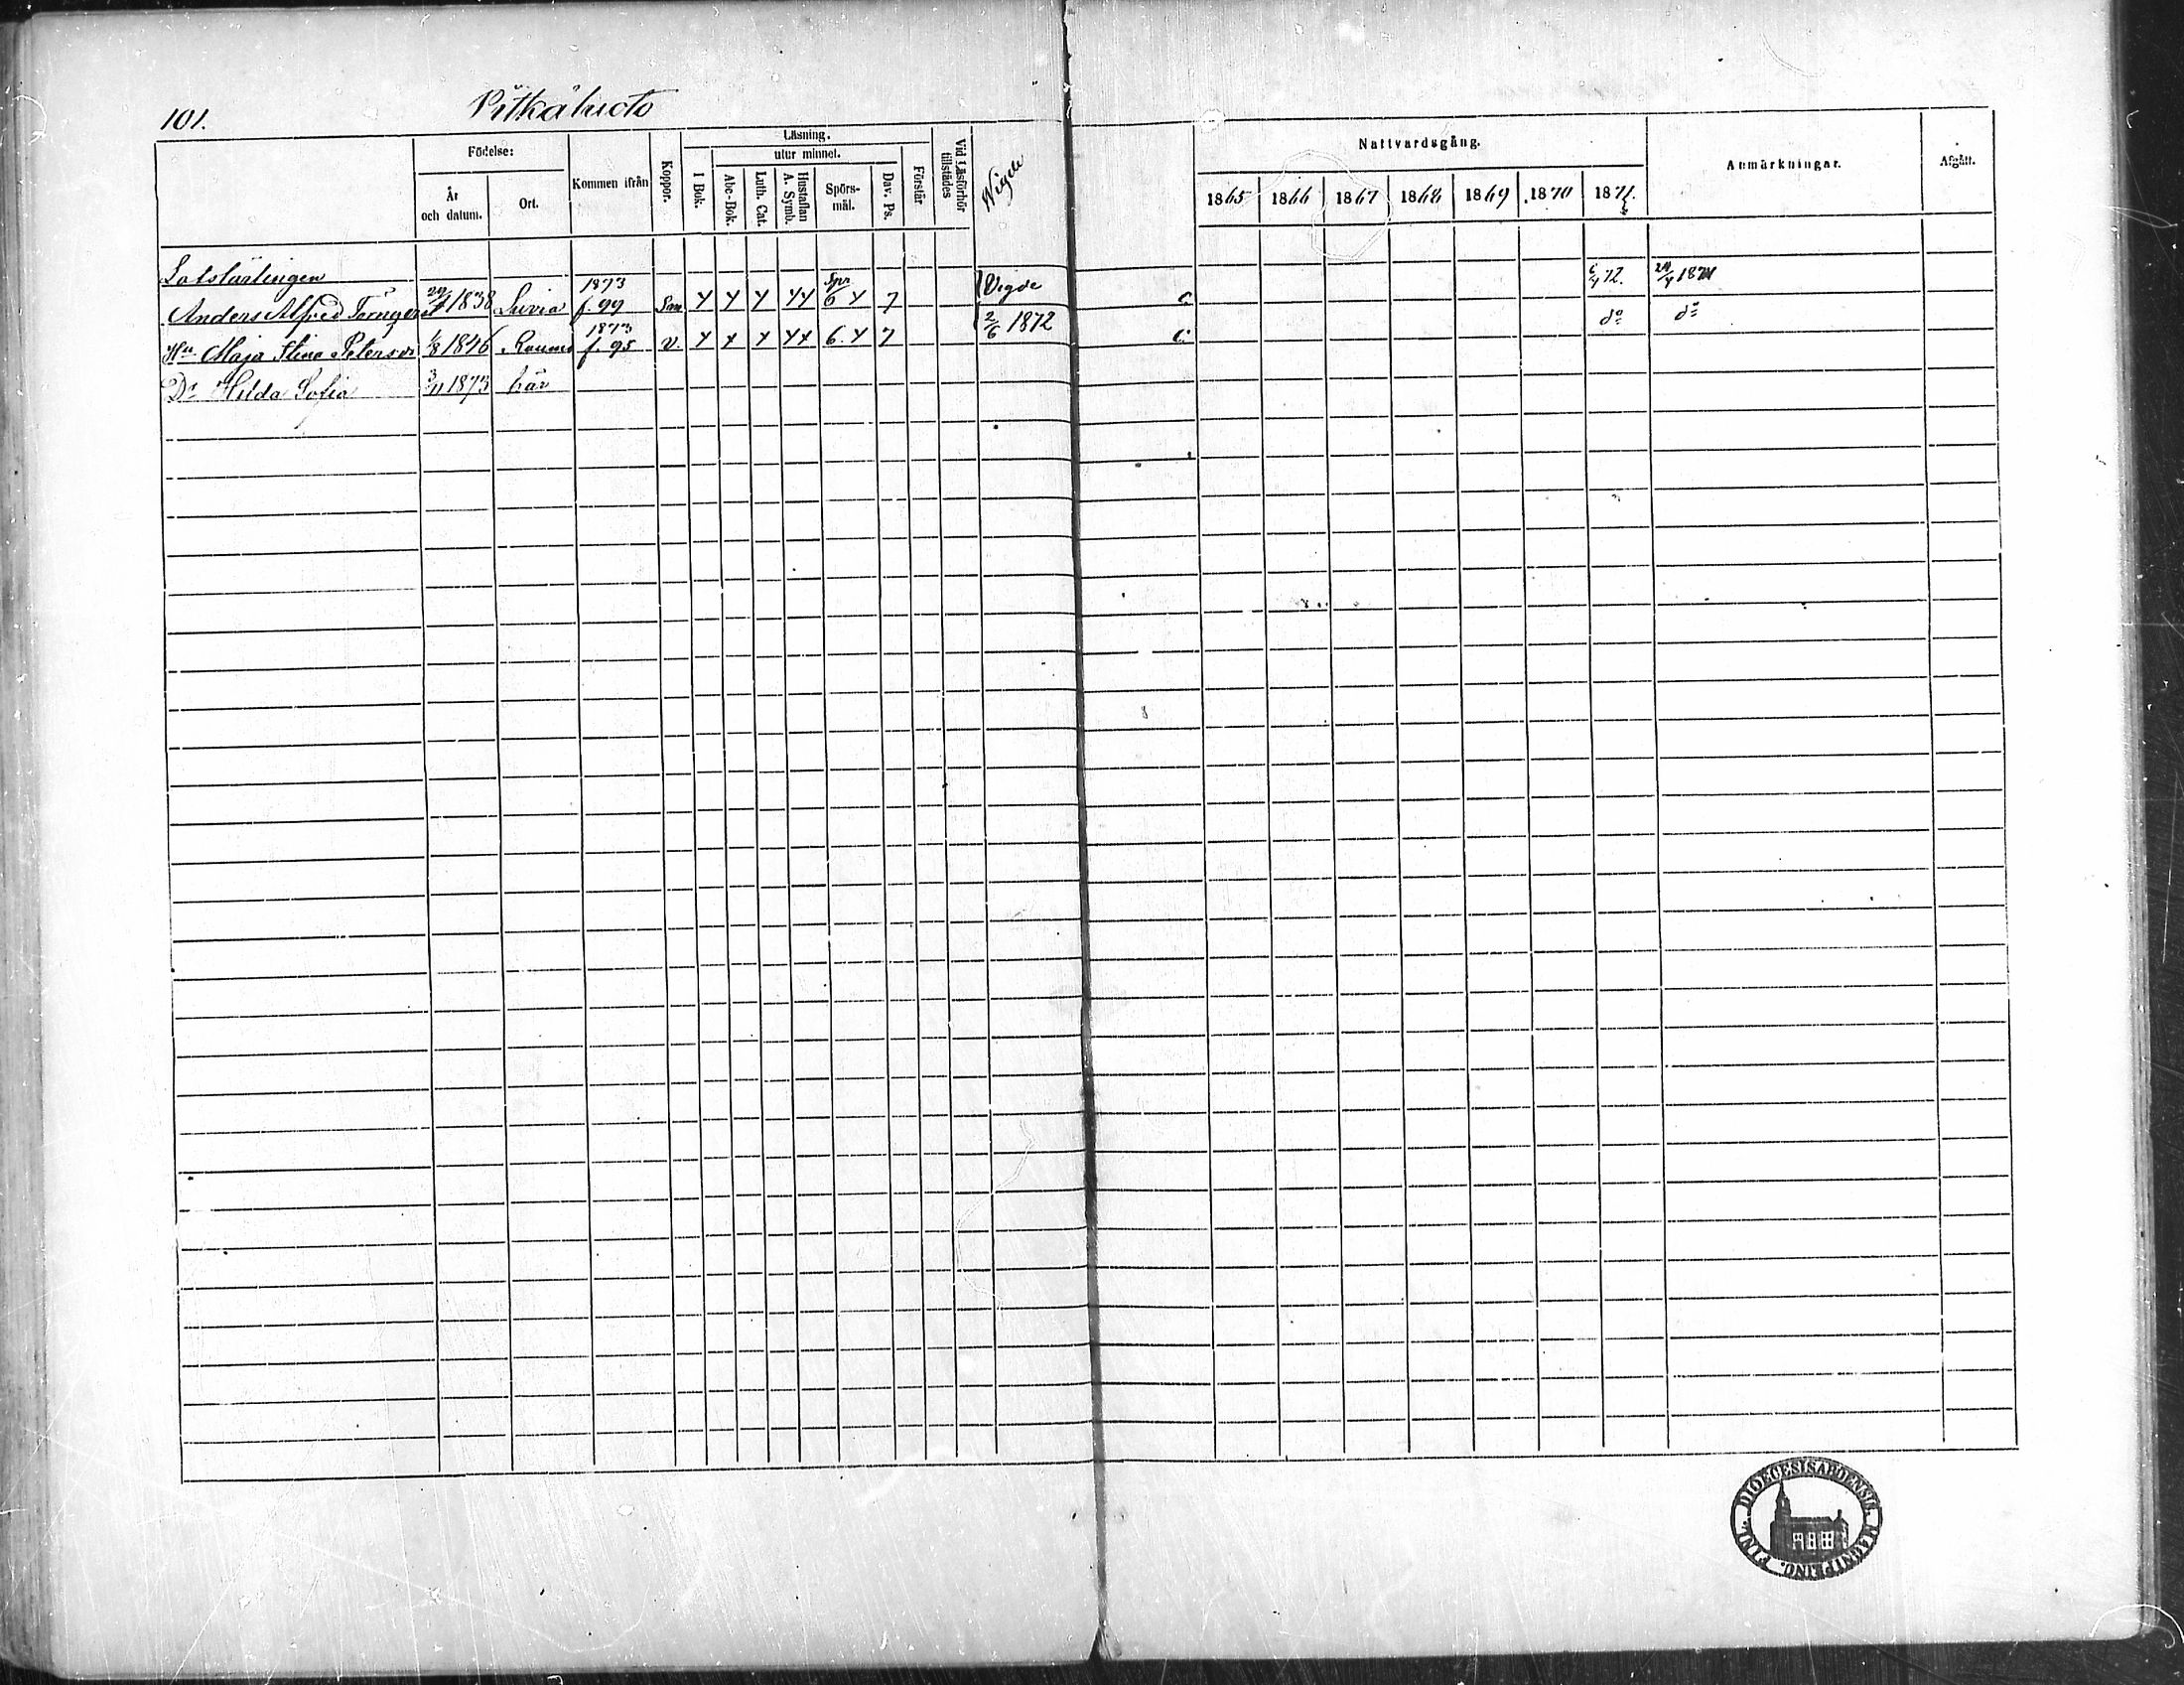 101.
Pitkäluoto
Födelse:
År och datum.
Ort.
Kommen ifrån
Koppor.
Läsning.
I Bok.
utur minnet.
Abc-Bok.
Luth. Cat.
Hustaflan A. Symb.
Spörs-mål.
Dav. Ps.
Förstår
Vid Läsförhör tillstädes
Wigde
Nattvardsgång.
1865 1866 1867 1868 1869 1870 1871
Anmärkningar.
Afgått.
Lotslärlingen
Anders Alfred 1838 Luvia 1873 f. 99 Spr 6 7 Vigde c. 6/4 72.
Hu Maja Stina Petersdr 1/8 1846 Raumo 1873 f. 95 v. 6. 7 2/6 1872 c. do do
Dr Hilda Sofia 3/11 1873 här
DIOECESIS ABOENSIS MAGNI PRINC. FINL.